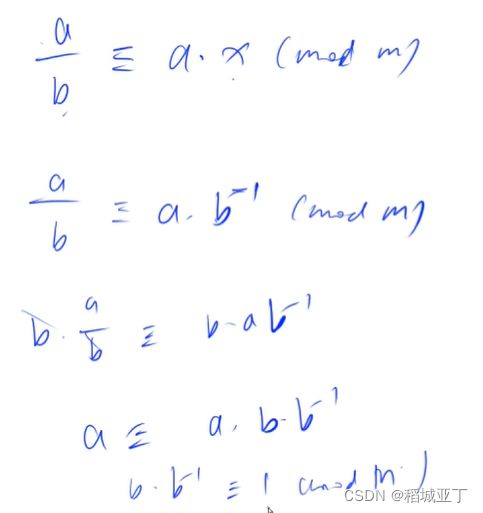 a/b ≡ a · x (mod m)
a/b ≡ a · b⁻¹ (mod m)
b · a/b ≡ b · a b⁻¹
a ≡ a · b · b⁻¹
b · b⁻¹ ≡ 1 (mod m)
CSDN @稻城亚丁